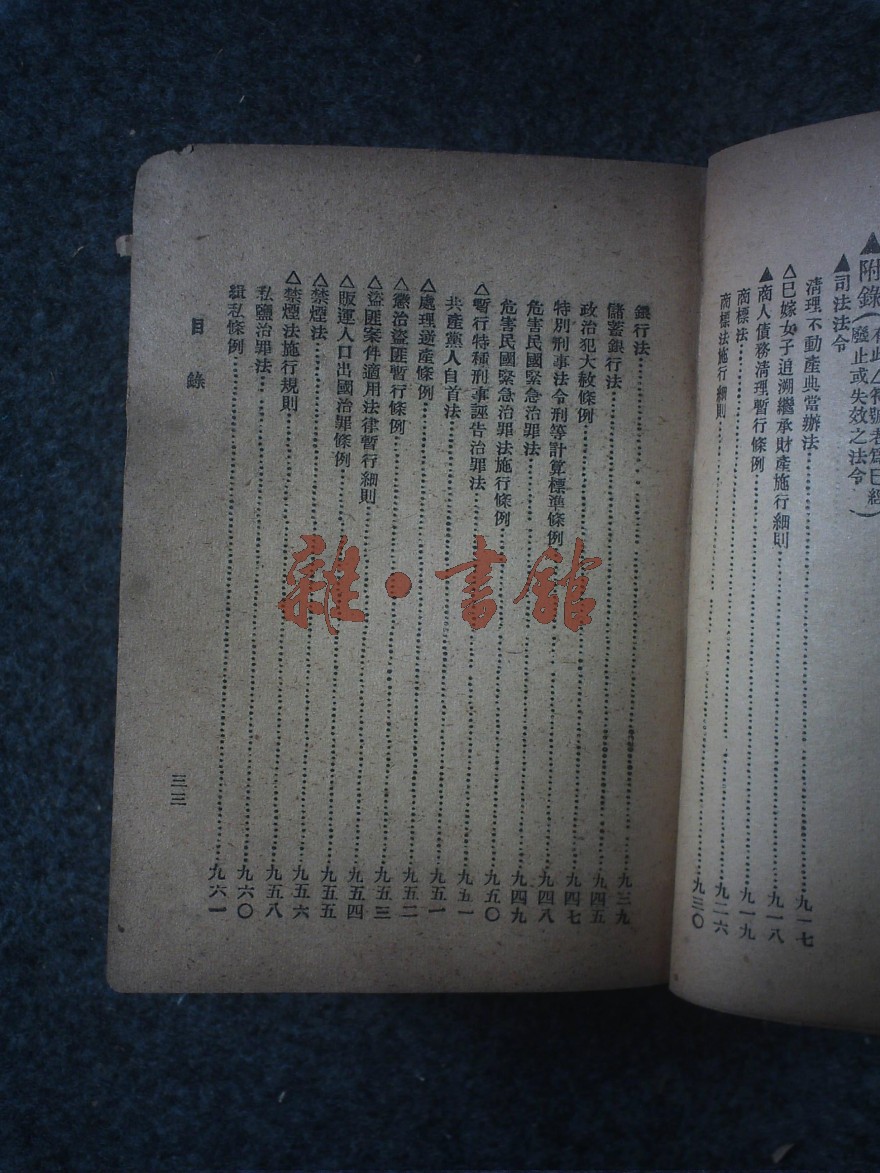 ▲附錄(有此△符號者爲已經廢止或失效之法令)
▲司法法令
清理不動產典當辦法……九一七
△已嫁女子追溯繼承財產施行細則……九一八
▲商人債務清理暫行條例……九一九
商標法……九二六
商標法施行細則……九三〇
銀行法……九三九
儲蓄銀行法……九四五
政治犯大赦條例……九四七
特別刑事法令刑等計算標準條例……九四八
危害民國緊急治罪法……九四九
危害民國緊急治罪法施行條例……九五〇
△暫行特種刑事誣告治罪法……九五一
共產黨人自首法……九五一
△處理逆產條例……九五二
△懲治盜匪暫行條例……九五三
△盜匪案件適用法律暫行細則……九五四
△販運人口出國治罪條例……九五五
△禁煙法……九五六
△禁煙法施行規則……九五八
私鹽治罪法……九六〇
緝私條例……九六一
目錄
三三
雜·書館